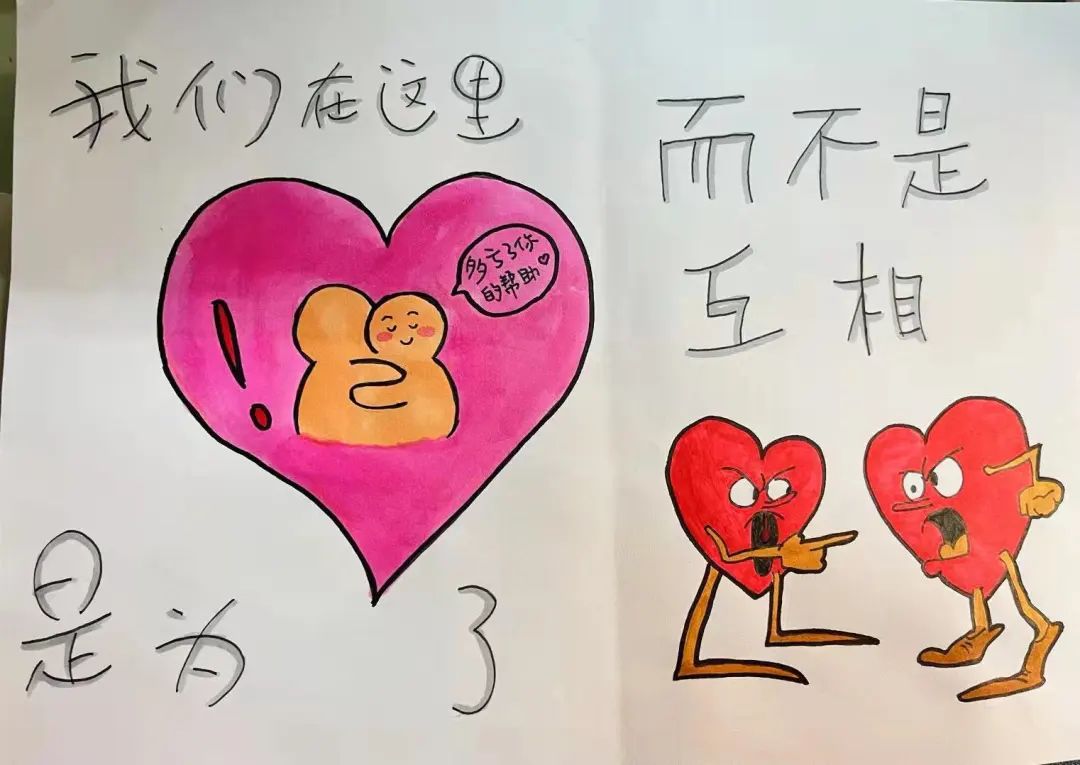 我们在这里
多亏了你
的帮助
是为了
而不是
互相